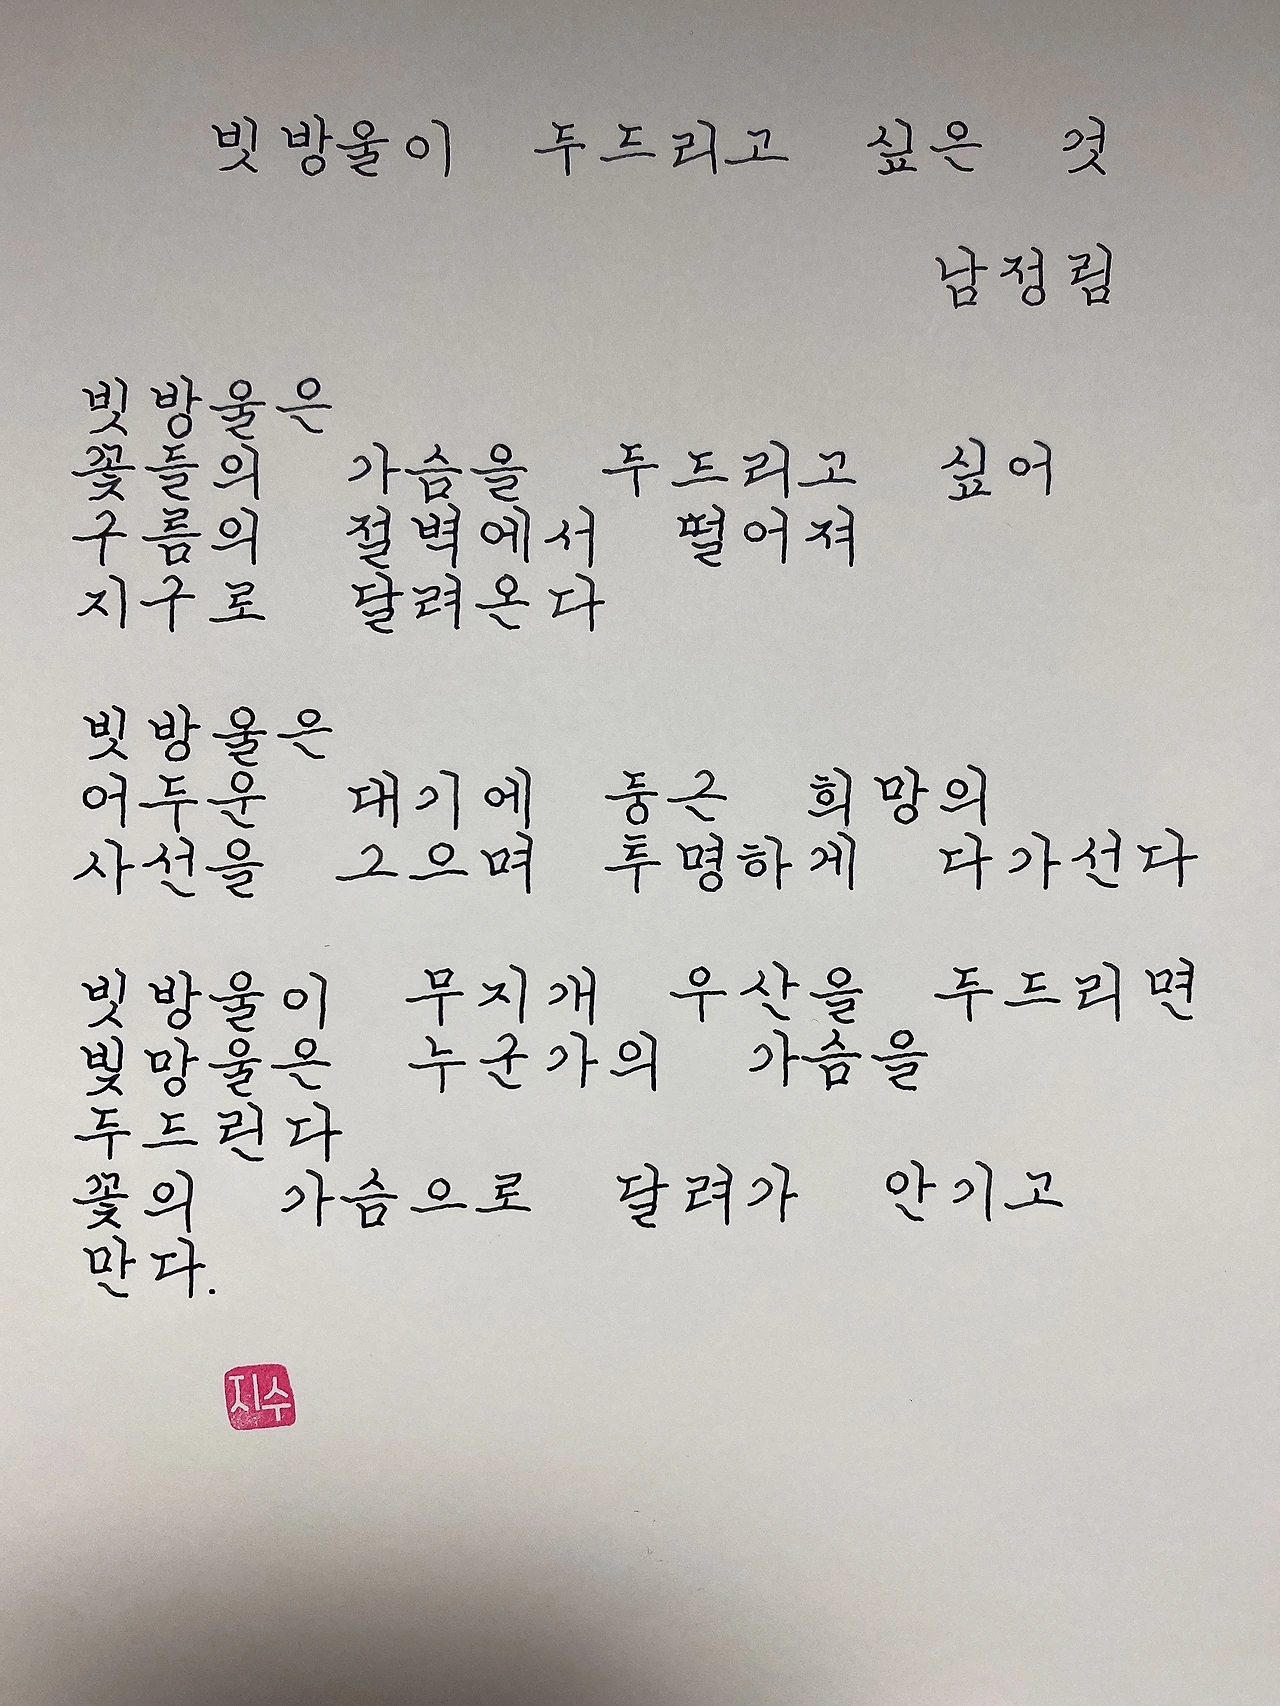 빗방울이 두드리고 싶은 것
남정림
빗방울은
꽃들의 가슴을 두드리고 싶어
구름의 절벽에서 떨어져
지구로 달려온다
빗방울은
어두운 대기에 둥근 희망의
사선을 그으며 투명하게 다가선다
빗방울이 무지개 우산을 두드리면
빛망울은 누군가의 가슴을
두드린다
꽃의 가슴으로 달려가 안기고
만다.
지수